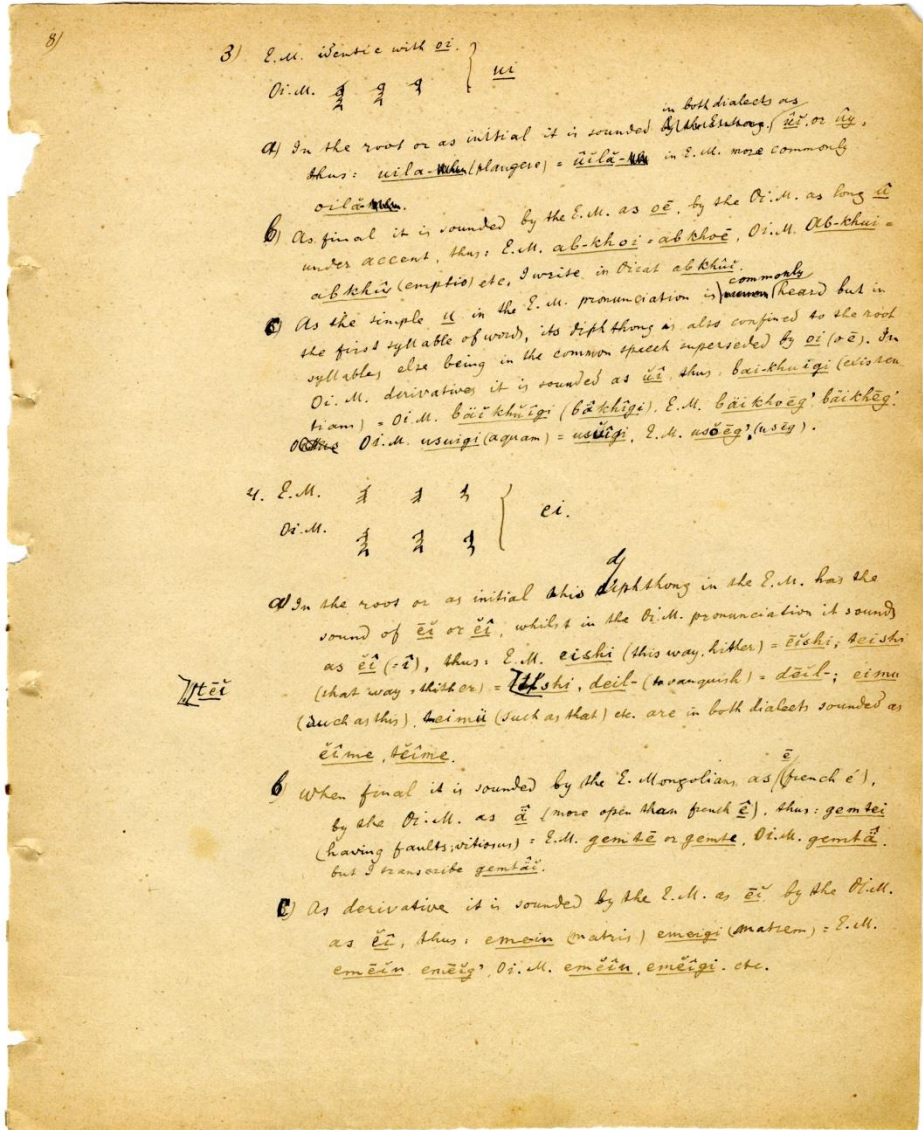 8)
3) E.M. identic with oi.
Oi.M. } ui
in both dialects as
a) In the root or as initial it is sounded ŭĭ, or ûy,
thus: uila- (plangere) = ûĭlă- in E.M. more commonly
oilă-.
b) As final it is sounded by the E.M. as oē, by the Oi.M. as long û
under accent, thus: E.M. ab-khoi = abkhoē, Oi.M. Ab-khui =
abkhû (emptio) etc, I write in Oicat abkhûĭ.
commonly
c) As the simple u in the E.M. pronunciation is heard but in
the first syllable of words, its diphthong is also confined to the root
syllables, else being in the common speech superseded by oi (oē). In
Oi.M. derivatives it is sounded as ŭî, thus: bai-khuīgi (existen
tiam) = Oi.M. băĭkhŭîgi (bâkhîgi), E.M. băikhoēg', băikhēg'.
Oi.M. usuigi (aquam) = usŭîgi, E.M. usŏēg', (usēg).
4. E.M.
Oi.M. } ei.
di
a) In the root or as initial this diphthong in the E.M. has the
sound of ēĭ or ĕî, whilst in the Oi.M. pronunciation it sounds
as ĕî (=î), thus: E.M. eishi (this way, hither) = ēĭshi, teishi
tēĭ
(that way = thither) = shi, deil- (to vanquish) = dēĭl-; eimu
(such as this), teimü (such as that) etc. are in both dialects sounded as
ĕîme, tĕîme.
ē
b) When final it is sounded by the E. Mongolians as (french é),
by the Oi.M. as ä̂ (more open than french ê), thus: gemtei
(having faults; vitiosus) = E.M. gemtē or gemte, Oi.M. gemtä̂.
but I transcribe gemtä̂ĭ.
c) As derivative it is sounded by the E.M. as ēĭ by the Oi.M.
as ĕî, thus: emein (matris) emeigi (matrem) = E.M.
emēĭn emēĭg', Oi.M. emĕîn, emĕîgi. etc.